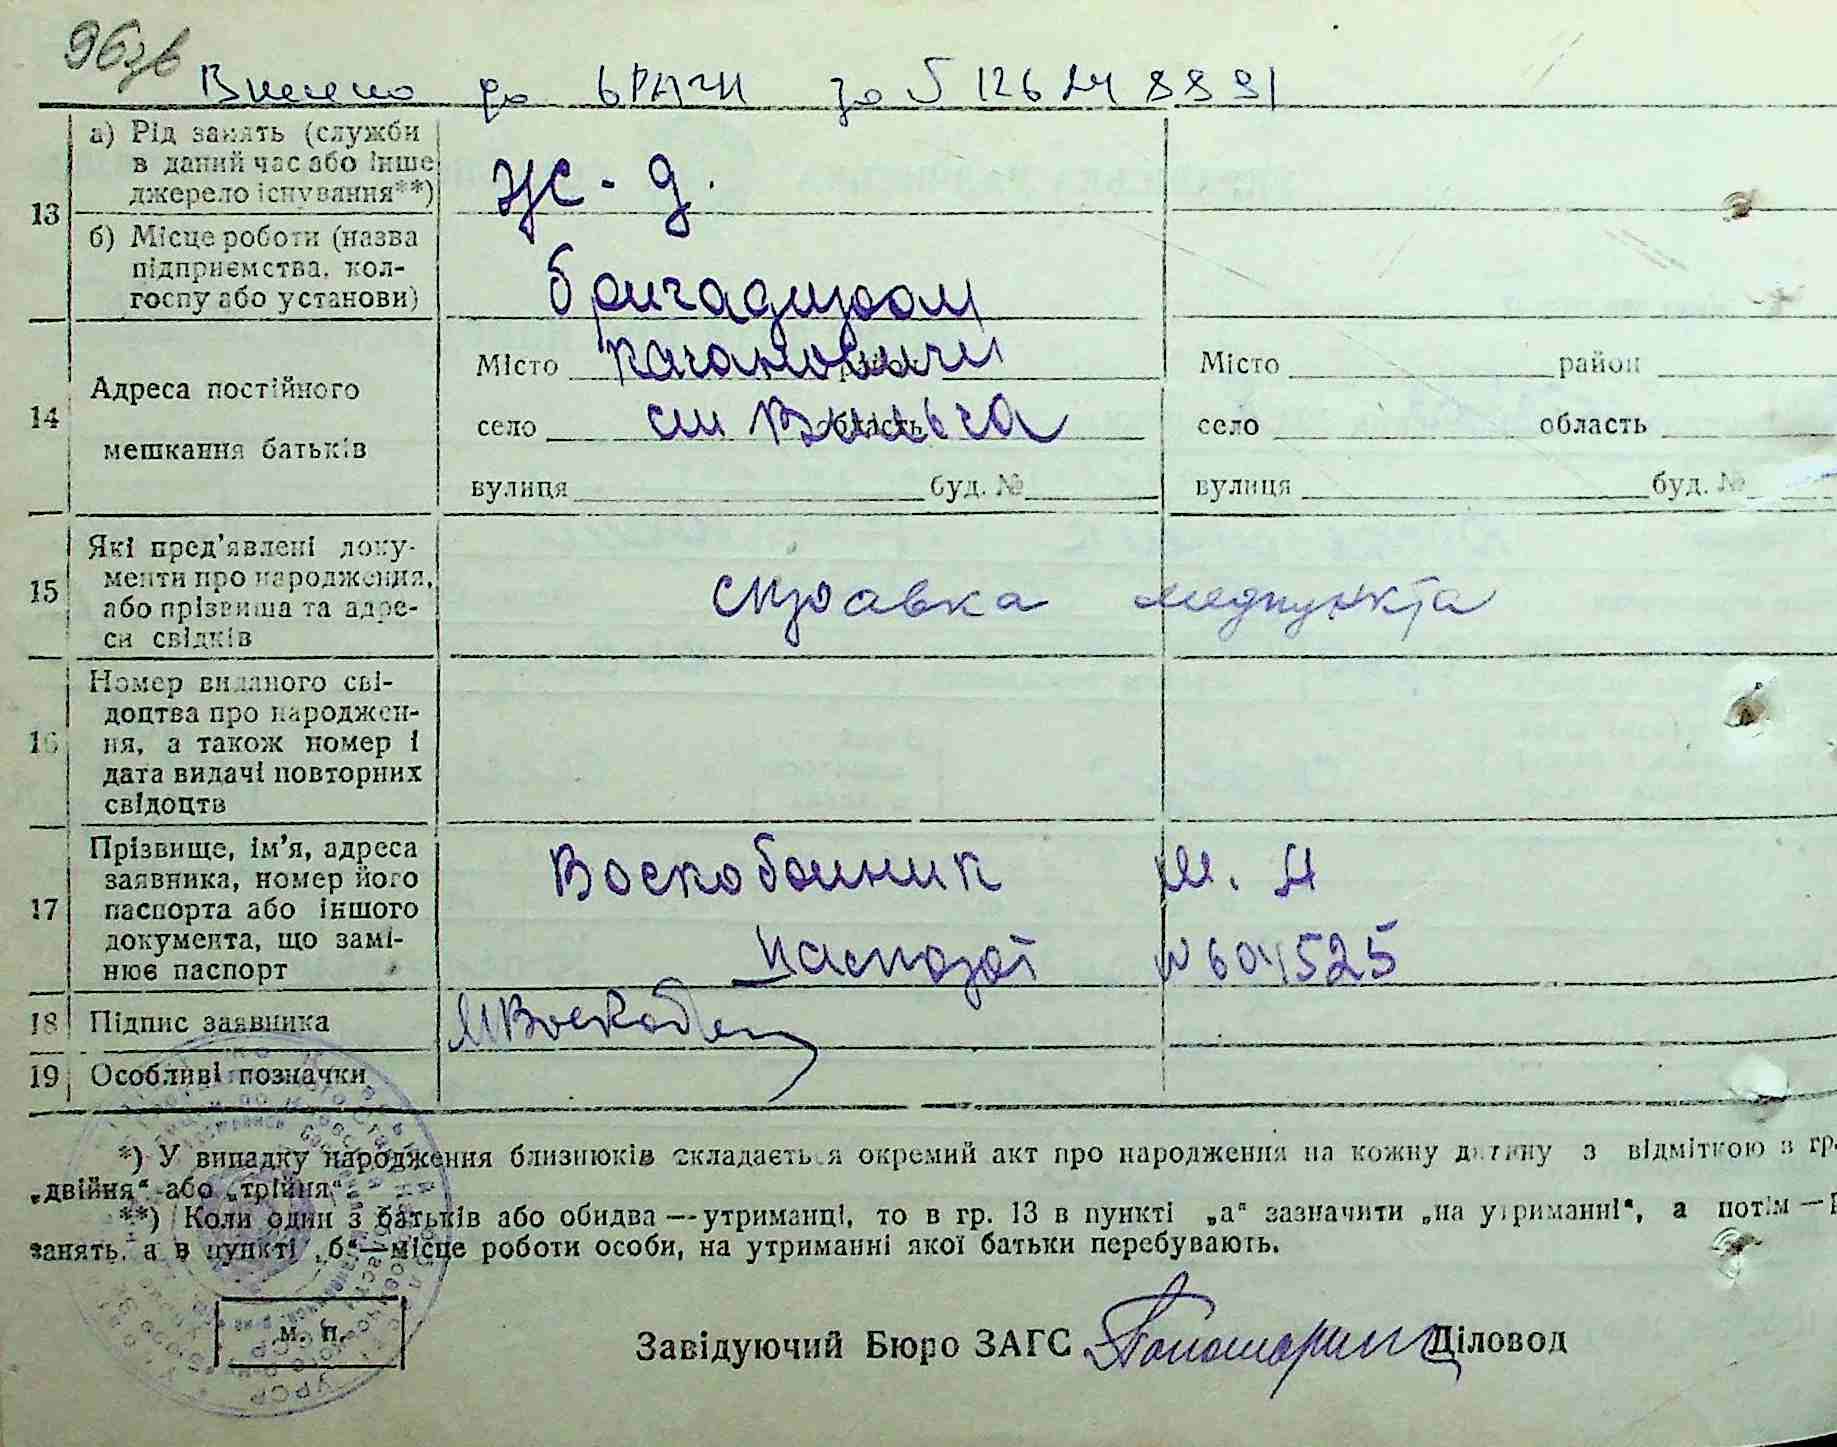 96зв
Внесено до ДРАЦГ за №
13
а) Рід занять (служби
в даний час або інше
джерело існування**)
Ж-д.
б) Місце роботи (назва
підприємства, кол-
госпу або установи)
бригадиром
14
Адреса постійного
мешкання батьків
Місто Кагановичи
село ст Вильча область
вулиця буд. №
Місто район
село область
вулиця буд. №
15
Які пред’явлені доку-
менти про народження,
або прізвища та адре-
си свідків
справка медпункта
16
Номер виданого сві-
доцтва про народжен-
ня, а також номер і
дата видачі повторних
свідоцтв
17
Прізвище, ім’я, адреса
заявника, номер його
паспорта або іншого
документа, що замі-
нює паспорт
Воскобойник М. Д
паспорт № 604525
18
Підпис заявника
19
Особливі позначки
*) У випадку народження близнюків складається окремий акт про народження на кожну дитину з відміткою в гр.
„двійня“ або „трійня“.
**) Коли один з батьків або обидва — утриманці, то в гр. 13 в пункті „а“ зазначити „на утриманні“, а потім —
занять, а в пункті „б“ — місце роботи особи, на утриманні якої батьки перебувають.
м. п.
Завідуючий Бюро ЗАГС Діловод